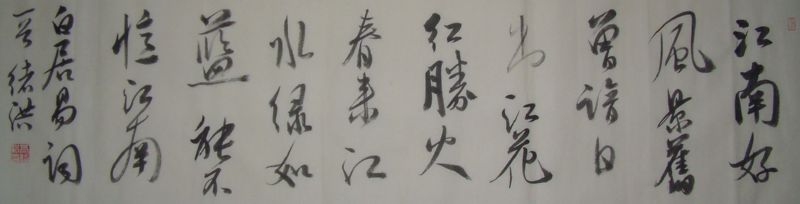 江南好
風景舊
曾諳日
出江花
红勝火
春来江
水绿如
藍能不
憶江南
白居易词